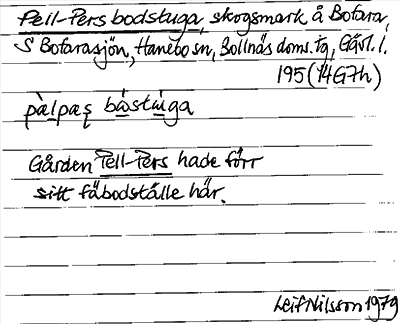 Pell-Pers bodstuga, skogsmark å Bofara,
S Bofarasjön, Hanebo sn, Bollnäs doms. tg, Gävl. l.
195 (14G7h)
pàlpaș bòstùga
Gården Pell-Pers hade förr
sitt fäbodställe här.
Leif Nilsson 1979